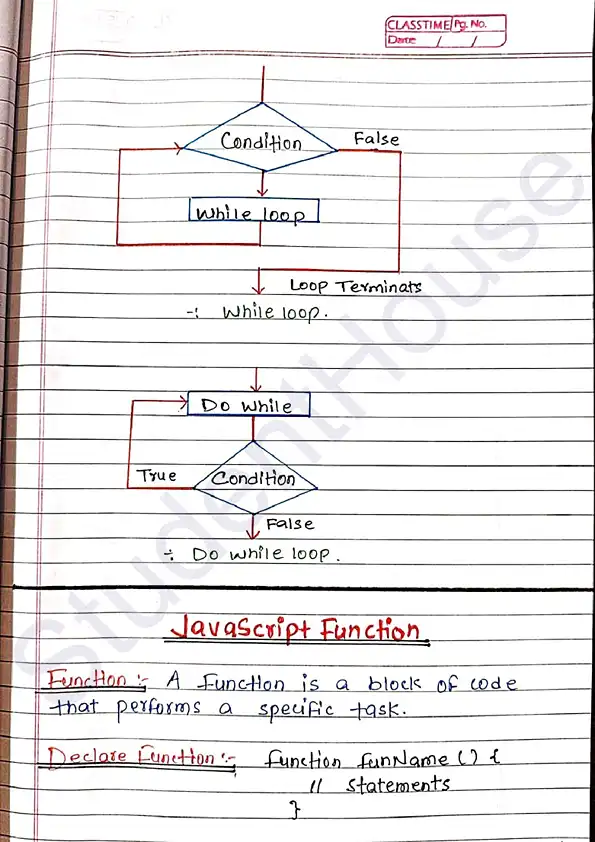 CLASSTIME Pg. No.
Date / /
Condition
False
While loop
Loop Terminats
-: While loop.
Do While
True
Condition
False
÷ Do while loop.
JavaScript Function
Function :- A function is a block of code
that performs a specific task.
Declare Function :- function funName () {
// statements
}
StudentHouse